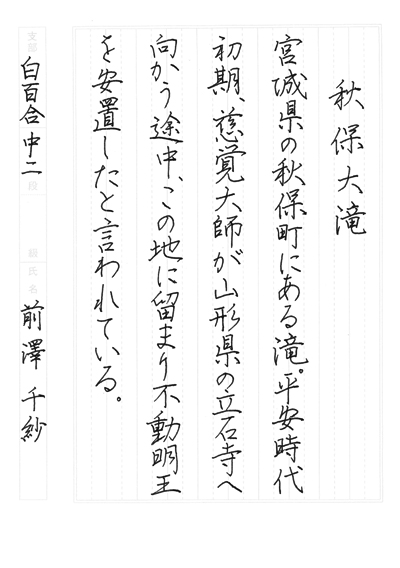 秋保大滝
宮城県の秋保町にある滝。平安時代
初期、慈覚大師が山形県の立石寺へ
向かう途中、この地に留まり不動明王
を安置したと言われている。
支部 白百合中二 段 級 氏名 前澤千紗